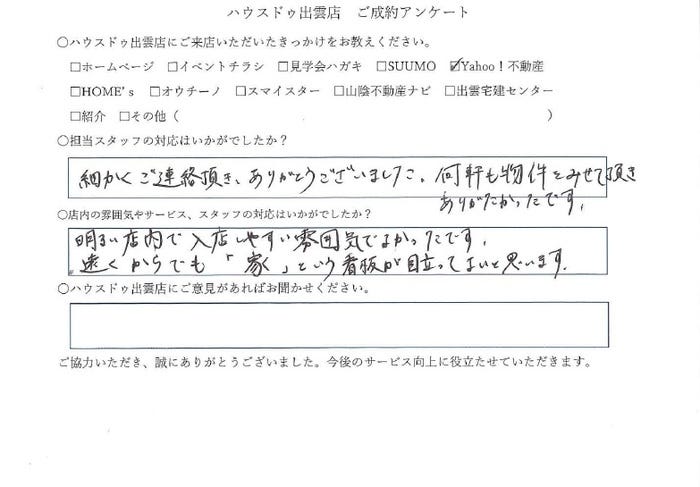 ハウスドゥ出雲店　ご成約アンケート
○ハウスドゥ出雲店にご来店いただいたきっかけをお教えください。
□ホームページ　□イベントチラシ　□見学会ハガキ　□SUUMO　☑Yahoo！不動産
□HOME's　□オウチーノ　□スマイスター　□山陰不動産ナビ　□出雲宅建センター
□紹介　□その他（　　　　　　　　　　　　　　　　　　　　　　　　　　　　）
○担当スタッフの対応はいかがでしたか？
細かくご連絡頂き、ありがとうございました。何軒も物件をみせて頂き
ありがたかったです。
○店内の雰囲気やサービス、スタッフの対応はいかがでしたか？
明るい店内で入店しやすい雰囲気でよかったです。
遠くからでも「家く」という看板が目立ってよいと思います。
○ハウスドゥ出雲店にご意見があればお聞かせください。
ご協力いただき、誠にありがとうございました。今後のサービス向上に役立たせていただきます。